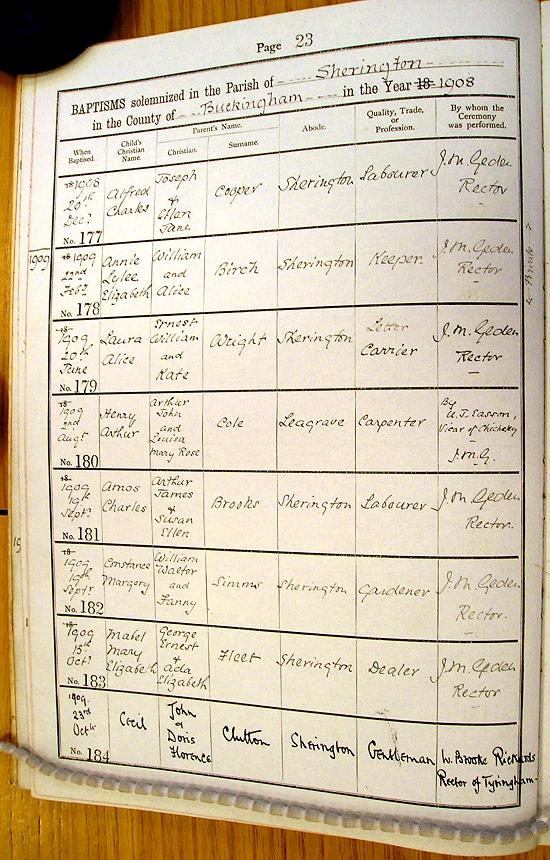 Page 23
BAPTISMS solemnized in the Parish of Sherington
in the County of Buckingham in the Year 18 1908
When Baptised. Child's Christian Name. Parent's Name. Christian. Surname. Abode. Quality, Trade, or Profession. By whom the Ceremony was performed.
18 1908 20th Decr No. 177 Alfred Charles Joseph & Ellen Jane Cooper Sherington Labourer J.M. Geden Rector
1909
18 1909 22nd Feby No. 178 Annie Lylee Elizabeth William and Alice Birch Sherington Keeper J.M. Geden Rector
18 1909. 20th June No. 179 Laura Alice Ernest William and Kate Wright Sherington Letter Carrier J.M. Geden Rector
18 1909 2nd Augt No. 180 Henry Arthur Arthur John and Louisa Mary Rose Cole Leagrave Carpenter By U.T. Easson, Vicar of Chicheley J.M.G.
18 1909 19th Septr No. 181 Amos Charles Arthur James & Susan Ellen Brooks Sherington Labourer J.M. Geden Rector.
18 1909. 19th Septr No. 182 Constance Margery William Walter and Fanny Simms Sherington Gardener J.M. Geden Rector.
18 1909 15th Octr No. 183 Mabel Mary Elizabeth George Ernest & Ada Elizabeth Fleet Sherington Dealer J.M. Geden Rector
1909. 23rd Octr No. 184 Cecil John & Doris Florence Clutton Sherington Gentleman W. Brooke Rickards Rector of Tyringham.
19